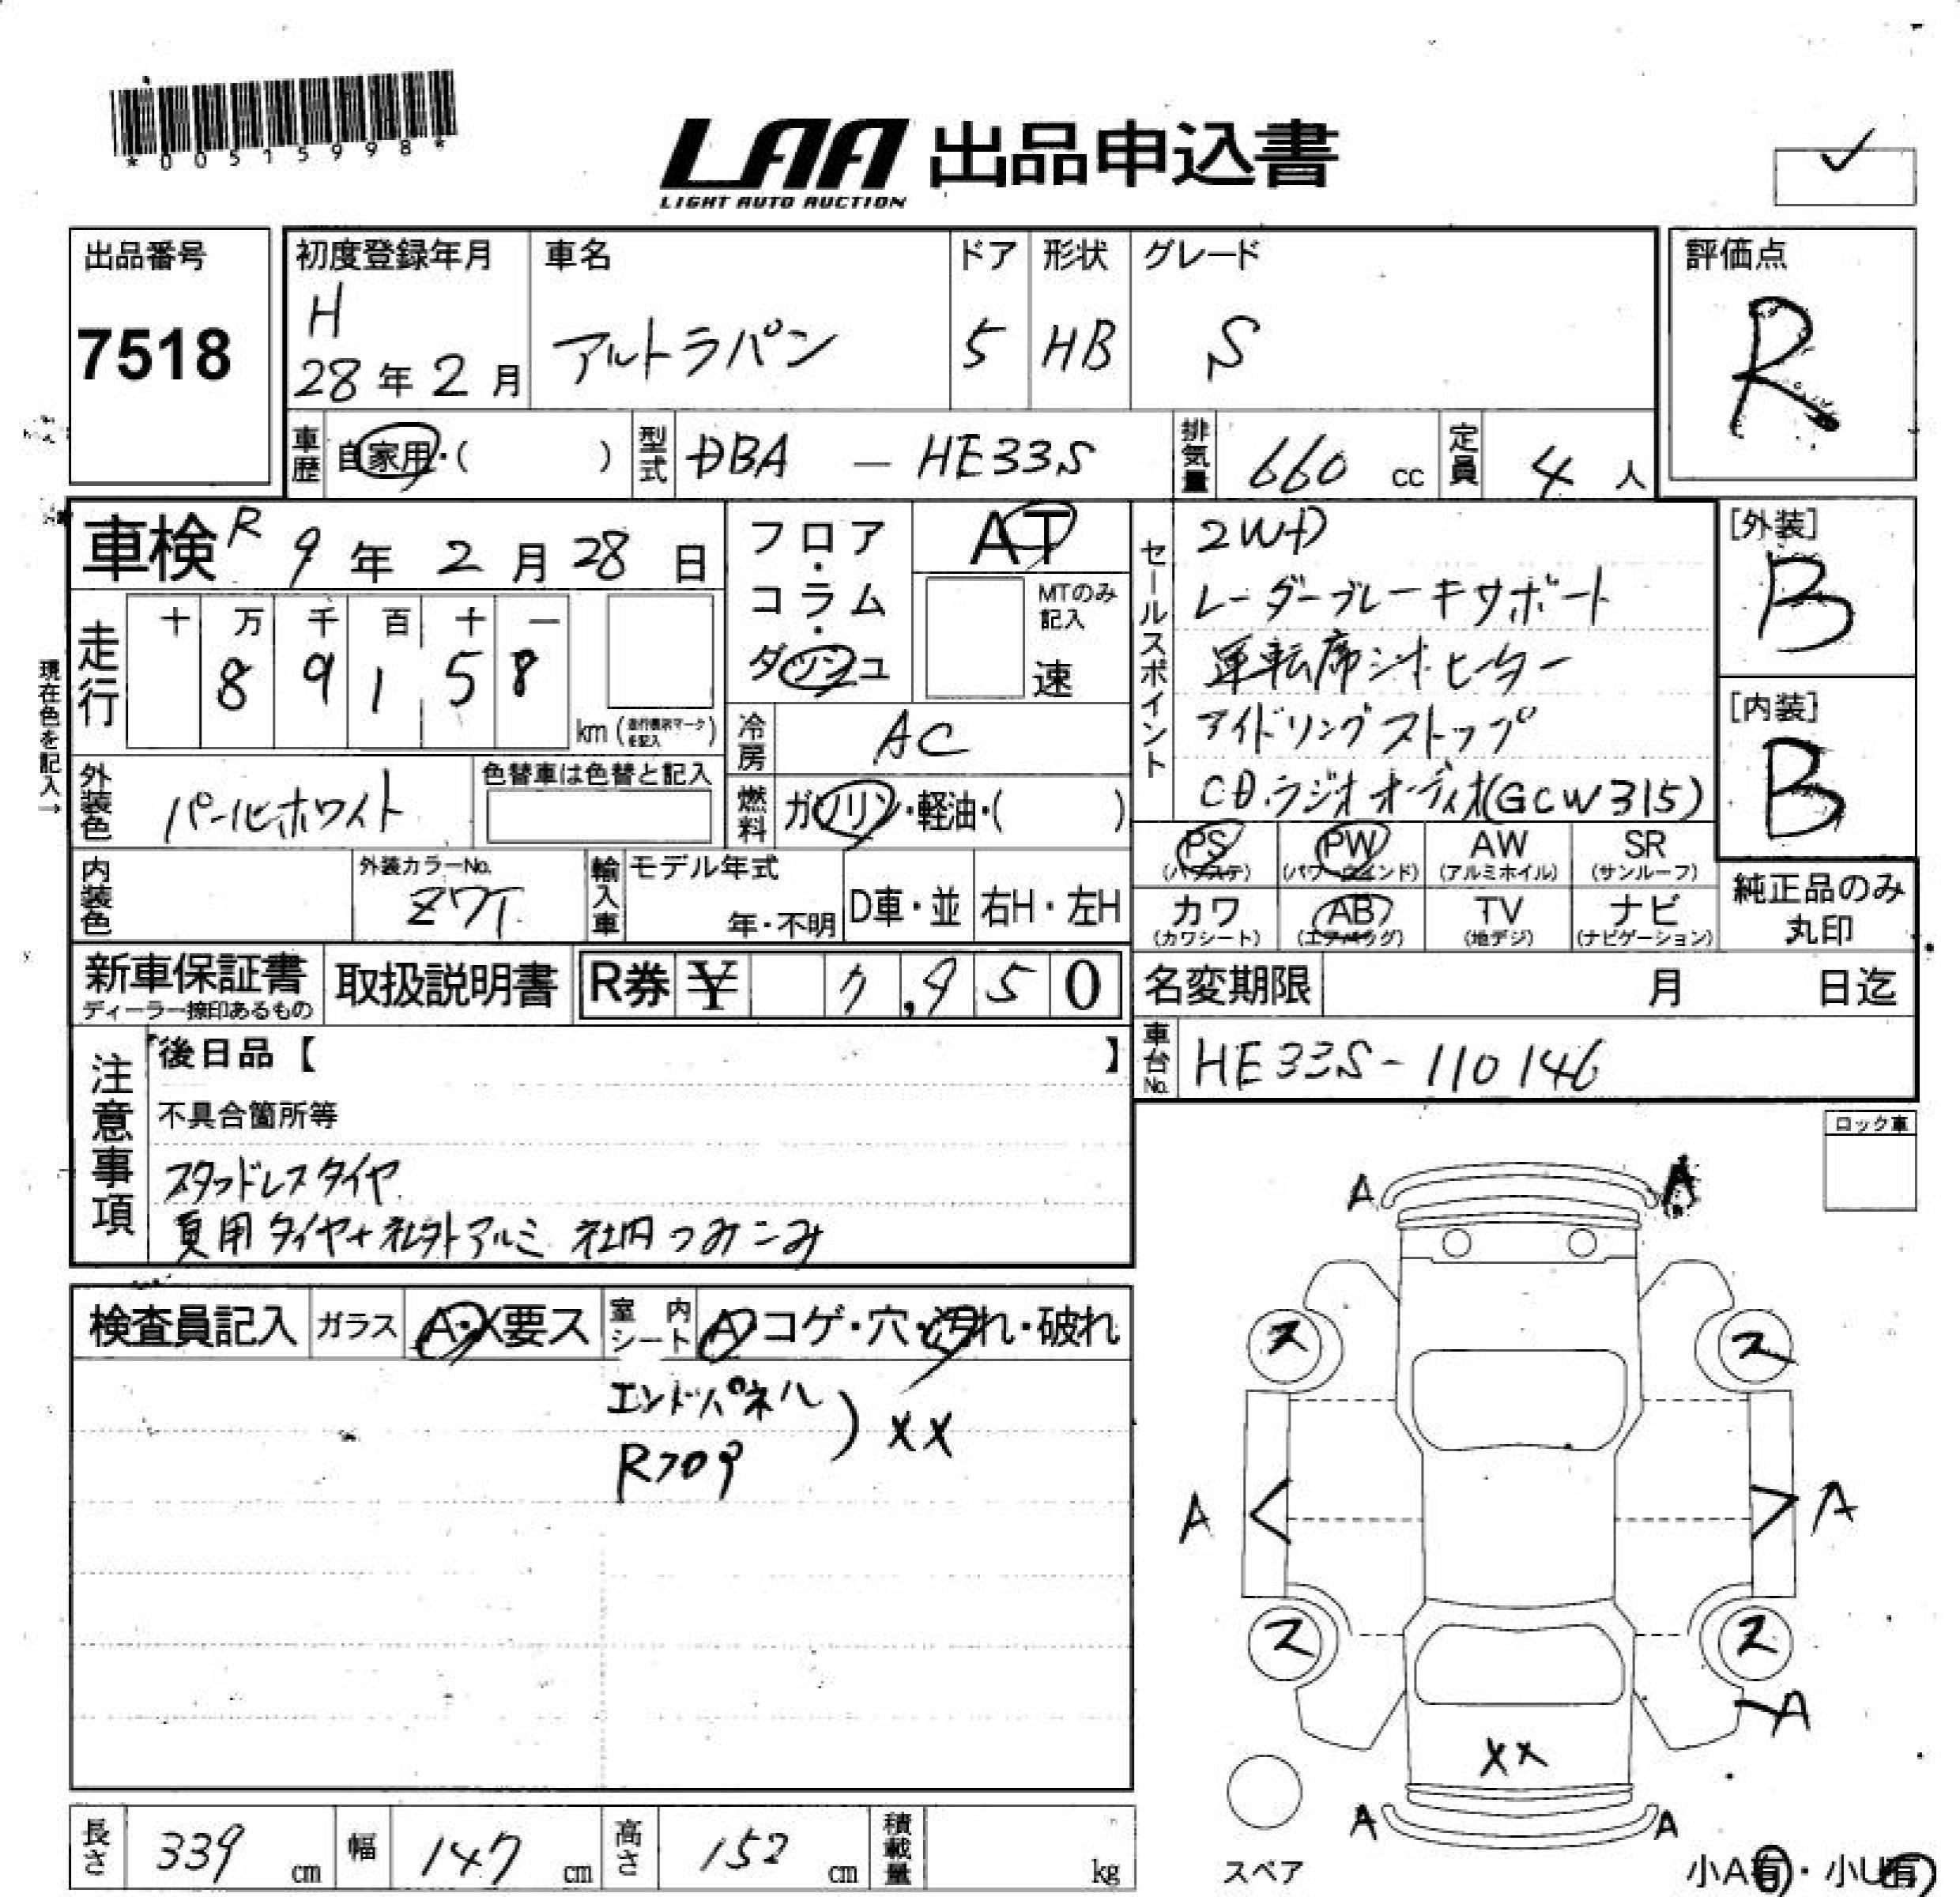 *00515998*
LAA 出品申込書
LIGHT AUTO AUCTION
出品番号
7518
初度登録年月
H
28年2月
車名
アルトラパン
ドア
5
形状
HB
グレード
S
評価点
R
車歴 自家用・( )
型式 DBA — HE33S
排気量 660 cc
定員 4 人
車検 R 9年 2月 28日
フロア・コラム・ダッシュ
AT
MTのみ記入
速
走行
十 万 千 百 十 一
8 9 1 5 8
km (走行表示マークを記入)
現在色を記入→
冷房 AC
外装色 パールホワイト
色替車は色替と記入
燃料 ガソリン・軽油・( )
内装色
外装カラーNo.
Z7T
輸入車 モデル年式
年・不明
D車・並
右H・左H
セールスポイント
2WD
レーダーブレーキサポート
運転席シートヒーター
アイドリングストップ
CD.ラジオオーディオ(GCW315)
[外装]
B
[内装]
B
PS (パワステ)
PW (パワーウインド)
AW (アルミホイル)
SR (サンルーフ)
カワ (カワシート)
AB (エアバッグ)
TV (地デジ)
ナビ (ナビゲーション)
純正品のみ丸印
新車保証書
ディーラー捺印あるもの
取扱説明書
R券 ¥ 7,950
名変期限 月 日迄
車台No. HE33S-110146
注意事項
後日品【 】
不具合箇所等
スタッドレスタイヤ
夏用タイヤ+社外アルミ 社内つみこみ
ロック車
検査員記入
ガラス A・X要ス
室内シート A・コゲ・穴・汚れ・破れ
エンドパネル
Rフロア
) XX
A A
ス ス
A A
ス ス
A
XX
A A
スペア
小A有・小U有
長さ 339 cm
幅 147 cm
高さ 152 cm
積載量 kg